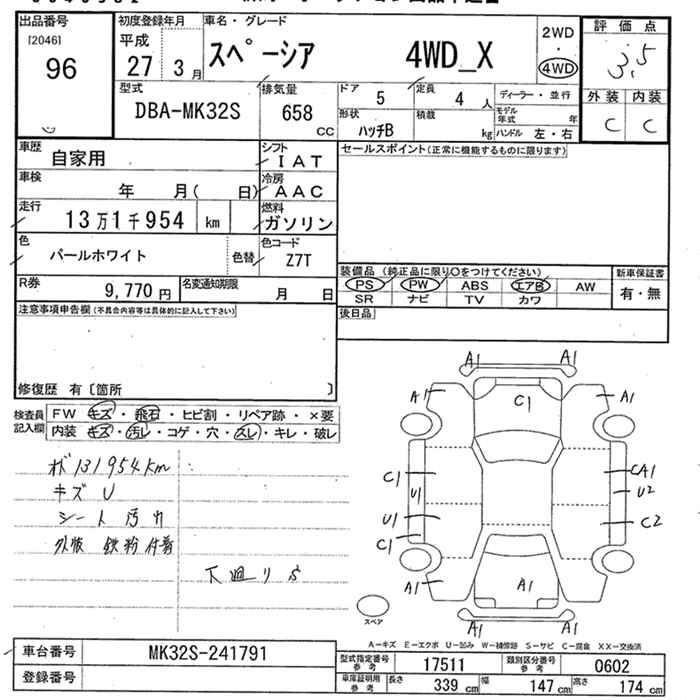 出品番号
[2046]
96
初度登録年月
平成
27 3月
車名・グレード
スペーシア 4WD_X
2WD
・
4WD
評価点
3.5
外装 内装
C C
型式
DBA-MK32S
排気量
658 CC
ドア
5
定員
4 人
ディーラー・並行
形状
ハッチB
積載
kg
モデル年式 年
ハンドル 左・右
車歴
自家用
シフト
IAT
車検
年 月( 日)
冷房
AAC
走行
13万1千954 km
燃料
ガソリン
色
パールホワイト
色替
色コード
Z7T
R券
9,770円
名変通知期限
月 日
セールスポイント(正常に機能するものに限ります)
装備品 (純正品に限り○をつけてください)
PS PW ABS エアB AW
SR ナビ TV カワ
新車保証書
有・無
後日品
注意事項申告欄(不具合内容等は具体的に記入して下さい)
修復歴 有〔箇所 〕
検査員記入欄
FW キズ・飛石・ヒビ割・リペア跡・×要
内装 キズ・汚レ・コゲ・穴・スレ・キレ・破レ
131954km
キズ U
シート 汚れ
外装 鉄粉付着
下廻りS
A1 A1
A1 C1 A1
C1 CA1
U1 U2
U1 C2
C1
A1 A1 A1
スペア
A1 A1
A-キズ E-エクボ U-凹み W-補修跡 S-サビ C-腐食 XX-交換済
車台番号
MK32S-241791
登録番号
型式指定番号 参考
17511
類別区分番号 参考
0602
車庫証明用 参考
長さ 339 cm
幅 147 cm
高さ 174 cm